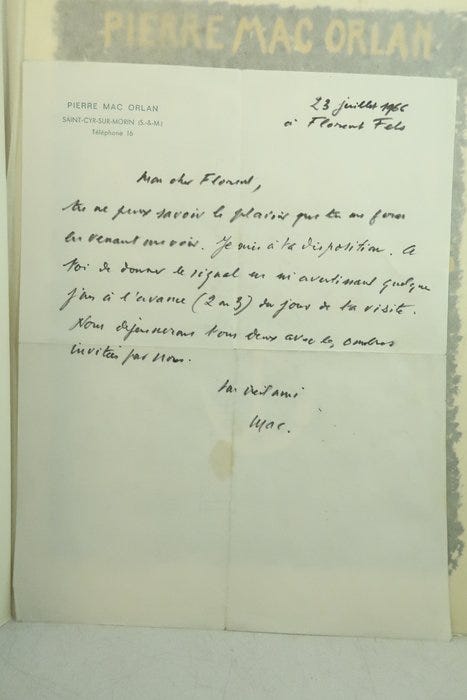 PIERRE MAC ORLAN
PIERRE MAC ORLAN
SAINT-CYR-SUR-MORIN (S.-&-M.)
Téléphone 16
23 juillet 1966
à Florent Fels
Mon cher Florent,
tu ne peux savoir le plaisir que tu me feras
en venant me voir. Je suis à ta disposition. A
toi de donner le signal en m'avertissant quelque
jours à l'avance (2 ou 3) du jour de ta visite.
Nous déjeunerons tous deux avec les ombres
invitées par nous.
ton vieil ami
Mac.